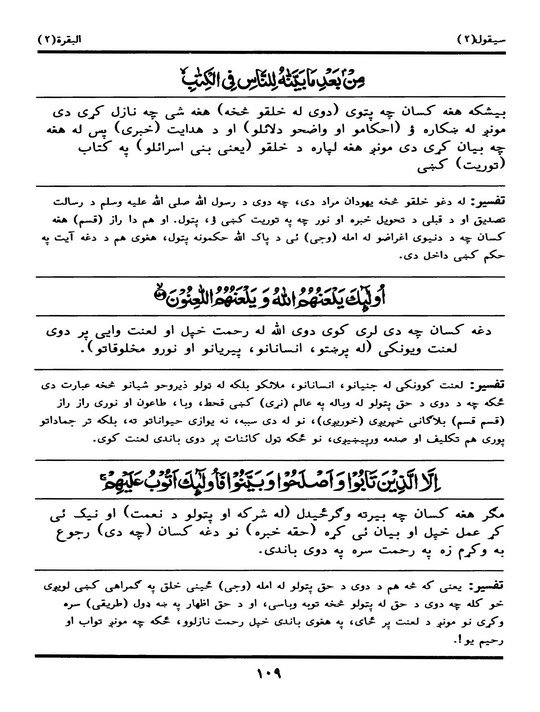 سيقول(٢)
البقرة(٢)
مِنْۢ بَعْدِ مَا بَيَّنّٰهُ لِلنَّاسِ فِى الْكِتٰبِ ۙ
بيشکه هغه کسان چه پټوي (دوى له خلقو څخه) هغه شى چه نازل کړى دى
مونږ له ښکاره ؤ (احکامو او واضحو دلائلو) او د هدايت (خبرى) پس له هغه
چه بيان کړى دى مونږ هغه لپاره د خلقو (يعنى بنى اسرائلو) په کتاب
(توريت) کښى
تفسير: له دغو خلقو څخه يهودان مراد دى، چه دوى د رسول الله صلى الله عليه وسلم د رسالت
تصديق او د قبلى د تحويل خبره او نور چه په توريت کښى ؤ، پټول. او هم دا راز (قسم) هغه
کسان چه د دنيوى اغراضو له امله (وجى) ئى د پاک الله حکمونه پټول، هغوى هم د دغه آيت په
حکم کښى داخل دى.
اُولٰٓئِكَ يَلْعَنُهُمُ اللّٰهُ وَ يَلْعَنُهُمُ اللّٰعِنُوْنَ ۙ
دغه کسان چه دى لرى کوى دوى الله له رحمت خپل او لعنت وايى پر دوى
لعنت ويونکى (له پرښتو، انسانانو، پيريانو او نورو مخلوقاتو).
تفسير: لعنت کوونکى له جنيانو، انسانانو، ملائکو بلکه له ټولو ذيروحو شيانو څخه عبارت دى
ځکه چه د دوى د حق پټولو له وباله په عالم (نړى) کښى قحط، وبا، طاعون او نورى راز راز
(قسم قسم) بلاګانى خپريږى (خوريږى)، نو له دى سببه، نه يوازى حيواناتو ته، بلکه تر جماداتو
پورى هم تکليف او صدمه ورپيښيږى، نو ځکه ټول کائنات پر دوى باندى لعنت کوى.
اِلَّا الَّذِيْنَ تَابُوْا وَ اَصْلَحُوْا وَ بَيَّنُوْا فَاُولٰٓئِكَ اَتُوْبُ عَلَيْهِمْ ۚ
مګر هغه کسان چه بيرته وګرځيدل (له شرکه او پټولو د نعمت) او نيک ئى
کړ عمل خپل او بيان ئى کړه (حقه خبره) نو دغه کسان (چه دى) رجوع
به وکړم زه په رحمت سره په دوى باندى.
تفسير: يعنى که څه هم د دوى د حق پټولو له امله (وجى) ځينى خلق په ګمراهى کښى لويږى
خو کله چه دوى د حق له پټولو څخه توبه وباسى، او د حق اظهار په ښه ډول (طريقى) سره
وکړى نو مونږ د لعنت پر ځاى، په هغوى باندى خپل رحمت نازلوو، ځکه چه مونږ تواب او
رحيم يو!.
١٠٩